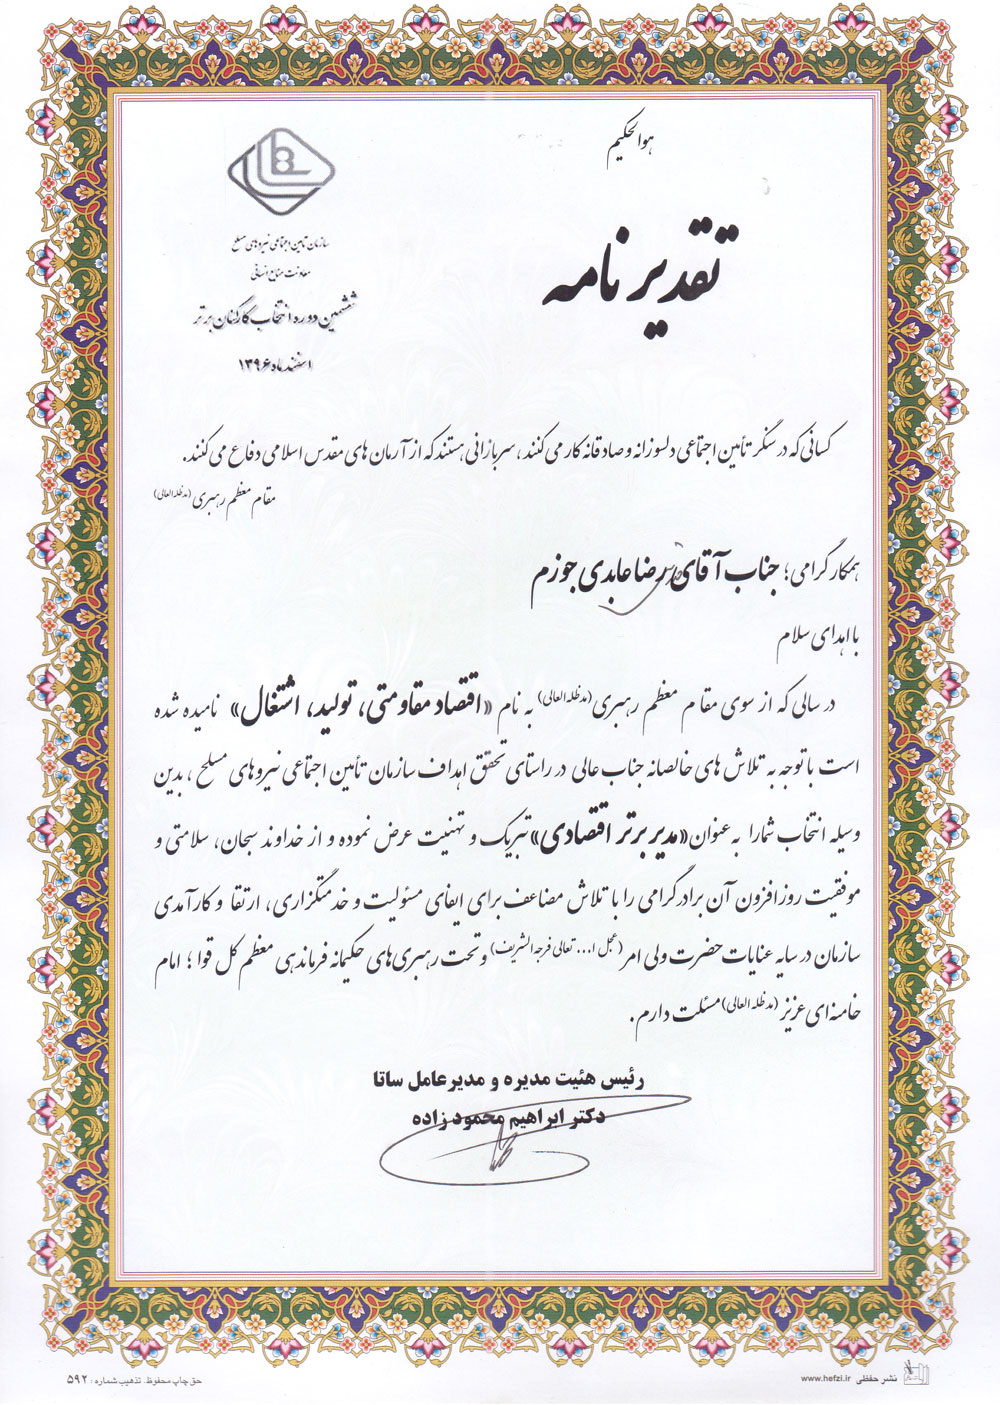 هوالحکیم
سازمان تامین اجتماعی نیروهای مسلح
معاونت منابع انسانی
ششمین دوره انتخاب کارکنان برتر
اسفند ماه ۱۳۹۶
تقدیرنامه
کسانی که در سنگر تأمین اجتماعی دلسوزانه و صادقانه کار می کنند، سربازانی هستند که از آرمان های مقدس اسلامی دفاع می کنند.
مقام معظم رهبری (مدظله العالی)
همکار گرامی؛ جناب آقای رضا عابدی جوزم
با اهدای سلام
در سالی که از سوی مقام معظم رهبری (مدظله العالی) به نام «اقتصاد مقاومتی، تولید، اشتغال» نامیده شده
است با توجه به تلاش های خالصانه جناب عالی در راستای تحقق اهداف سازمان تأمین اجتماعی نیروهای مسلح، بدین
وسیله انتخاب شما را به عنوان «مدیر برتر اقتصادی» تبریک و تهنیت عرض نموده و از خداوند سبحان، سلامتی و
موفقیت روزافزون آن برادر گرامی را با تلاش مضاعف برای ایفای مسئولیت و خدمتگزاری، ارتقا و کارآمدی
سازمان در سایه عنایات حضرت ولی امر (عجل ا... تعالی فرجه الشریف) و تحت رهبری های حکیمانه فرماندهی معظم کل قوا؛ امام
خامنه ای عزیز (مدظله العالی) مسئلت دارم.
رئیس هئیت مدیره و مدیرعامل ساتا
دکتر ابراهیم محمودزاده
حق چاپ محفوظ. تذهیب شماره : ۵۹۲
نشر حفظی www.hefzi.ir